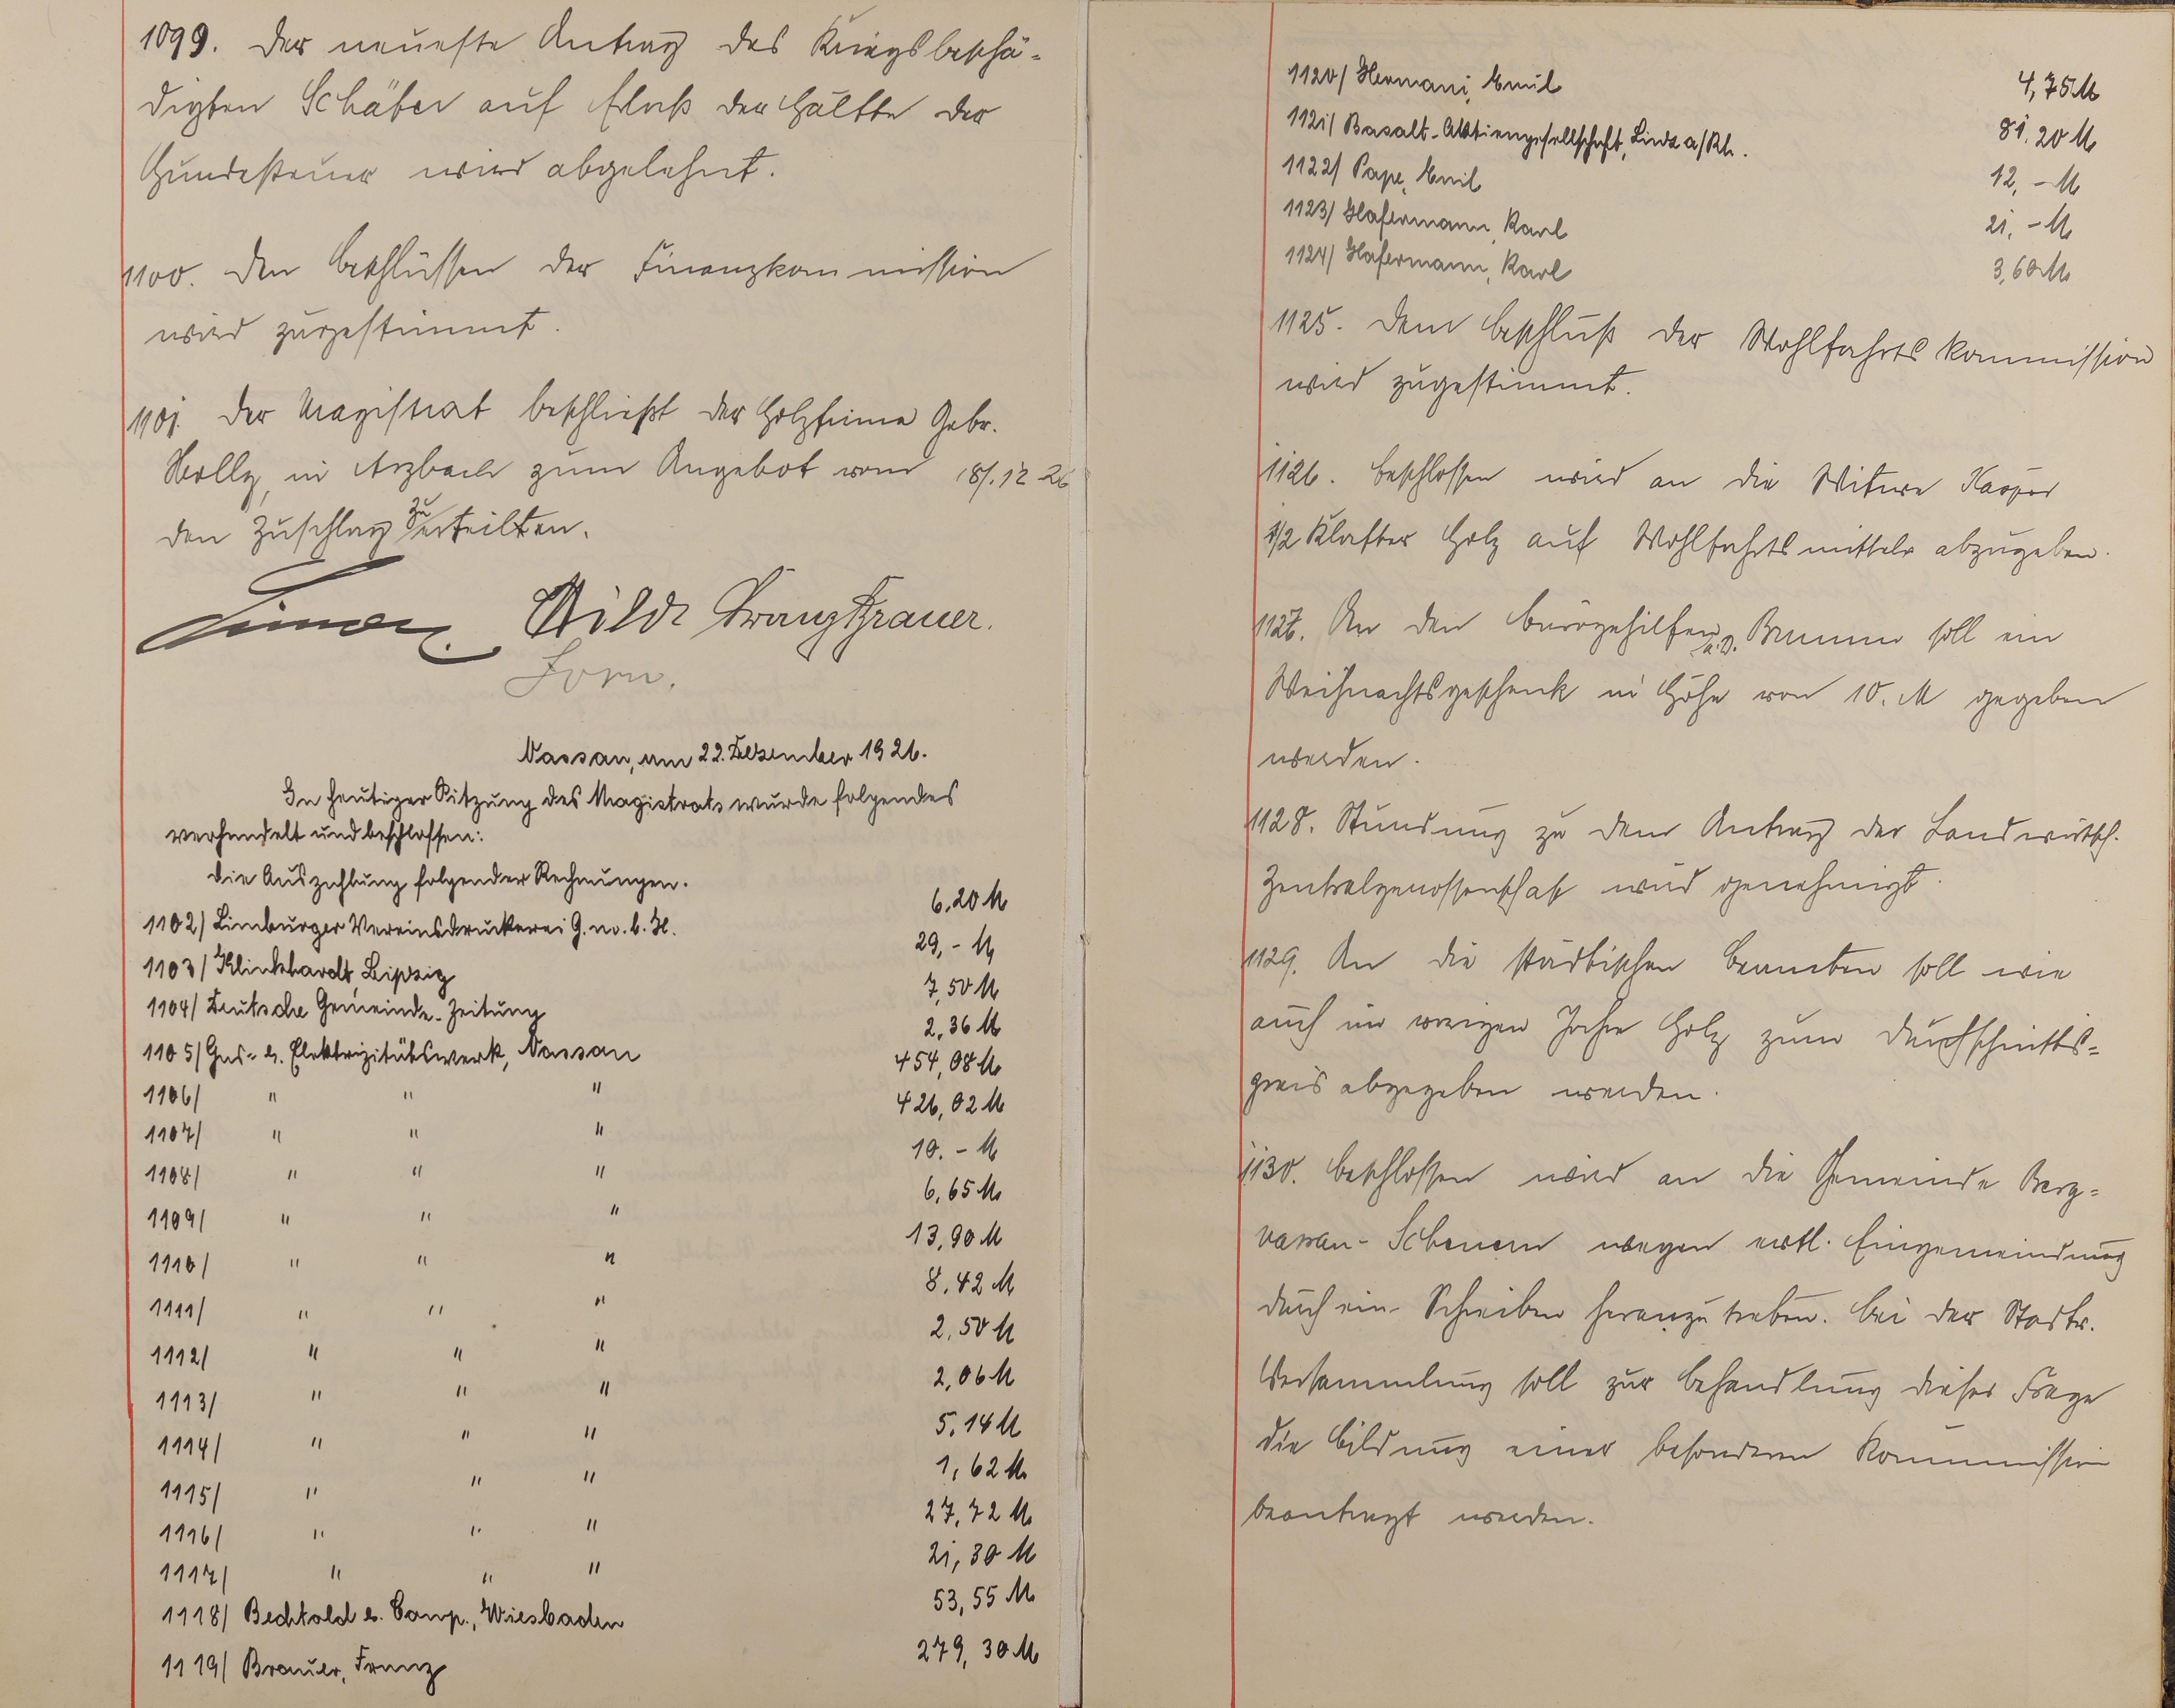 1099. Der neueste Antrag des Kriegsbeschä-
digten Schäfer auf Erlaß der Hälfte der
Hundesteuer wird abgelehnt.
1100. Den Beschlüssen der Finanzkommission
wird zugestimmt.
1101. Der Magistrat beschließt der Holzfirma Gebr.
in Arzbach zum Angebot vom 18/.12 26
den Zuschlag zu erteilten.
Simon Wilde Franz Brauer.
Nassau, am 22. Dezember 1926.
In heutiger Sitzung des Magistrats wurde folgendes
verhandelt und beschlossen:
Die Auszahlung folgender Rechnungen.
1102/ Limburger Vereinsdruckerei G.m.b.H. 6,20 M
1103/ Klinkhardt, Leipzig 29,- M
1104/ Deutsche Gemeinde-Zeitung 7,50 M
1105/ Gas- u. Elektrizitätswerk, Nassau 2,36 M
1106/ " " " 454,08 M
1107/ " " " 426,02 M
1108/ " " " 10.- M
1109/ " " " 6,65 M
1110/ " " " 13,90 M
1111/ " " " 8,42 M
1112/ " " " 2,50 M
1113/ " " " 2,06 M
1114/ " " " 5,14 M
1115/ " " " 1,62 M
1116/ " " " 27,72 M
1117/ " " " 21,30 M
1118/ Bechtold u. Comp., Wiesbaden 53,55 M
1119/ Brauer, Franz 279,30 M
1120/ Hermani, Emil 4,75 M
1121/ Basalt-Aktiengesellschaft, Linz a/Rh. 81,20 M
1122/ Pape, Emil 12,- M
1123/ Hafermann, Karl 21,- M
1124/ Hafermann, Karl 3,60 M
1125. Dem Beschluß der Wohlfahrtskommission
wird zugestimmt.
1126. Beschlossen wird an die Witwe Kaspar
1/2 Klafter Holz auf Wohlfahrtsmitteln abzugeben.
1127. An den Bürogehilfen a.D. soll ein
Weihnachtsgeschenk in Höhe von 10. M gegeben
werden.
1128. Stundung zu dem Antrag der Landwirtsch.
Zentralgenossenschaft wird genehmigt.
1129. An die städtischen Beamten soll wie
auch im vorigen Jahre Holz zum Durchschnitts-
preis abgegeben werden.
1130. Beschlossen wird an die Gemeinde Berg-
nassau-Scheuern wegen evtl. Eingemeindung
durch ein Schreiben heranzutreten. Bei der Stadtv.
Versammlung soll zur Behandlung dieser Frage
die Bildung einer besonderen Kommission
beantragt werden.